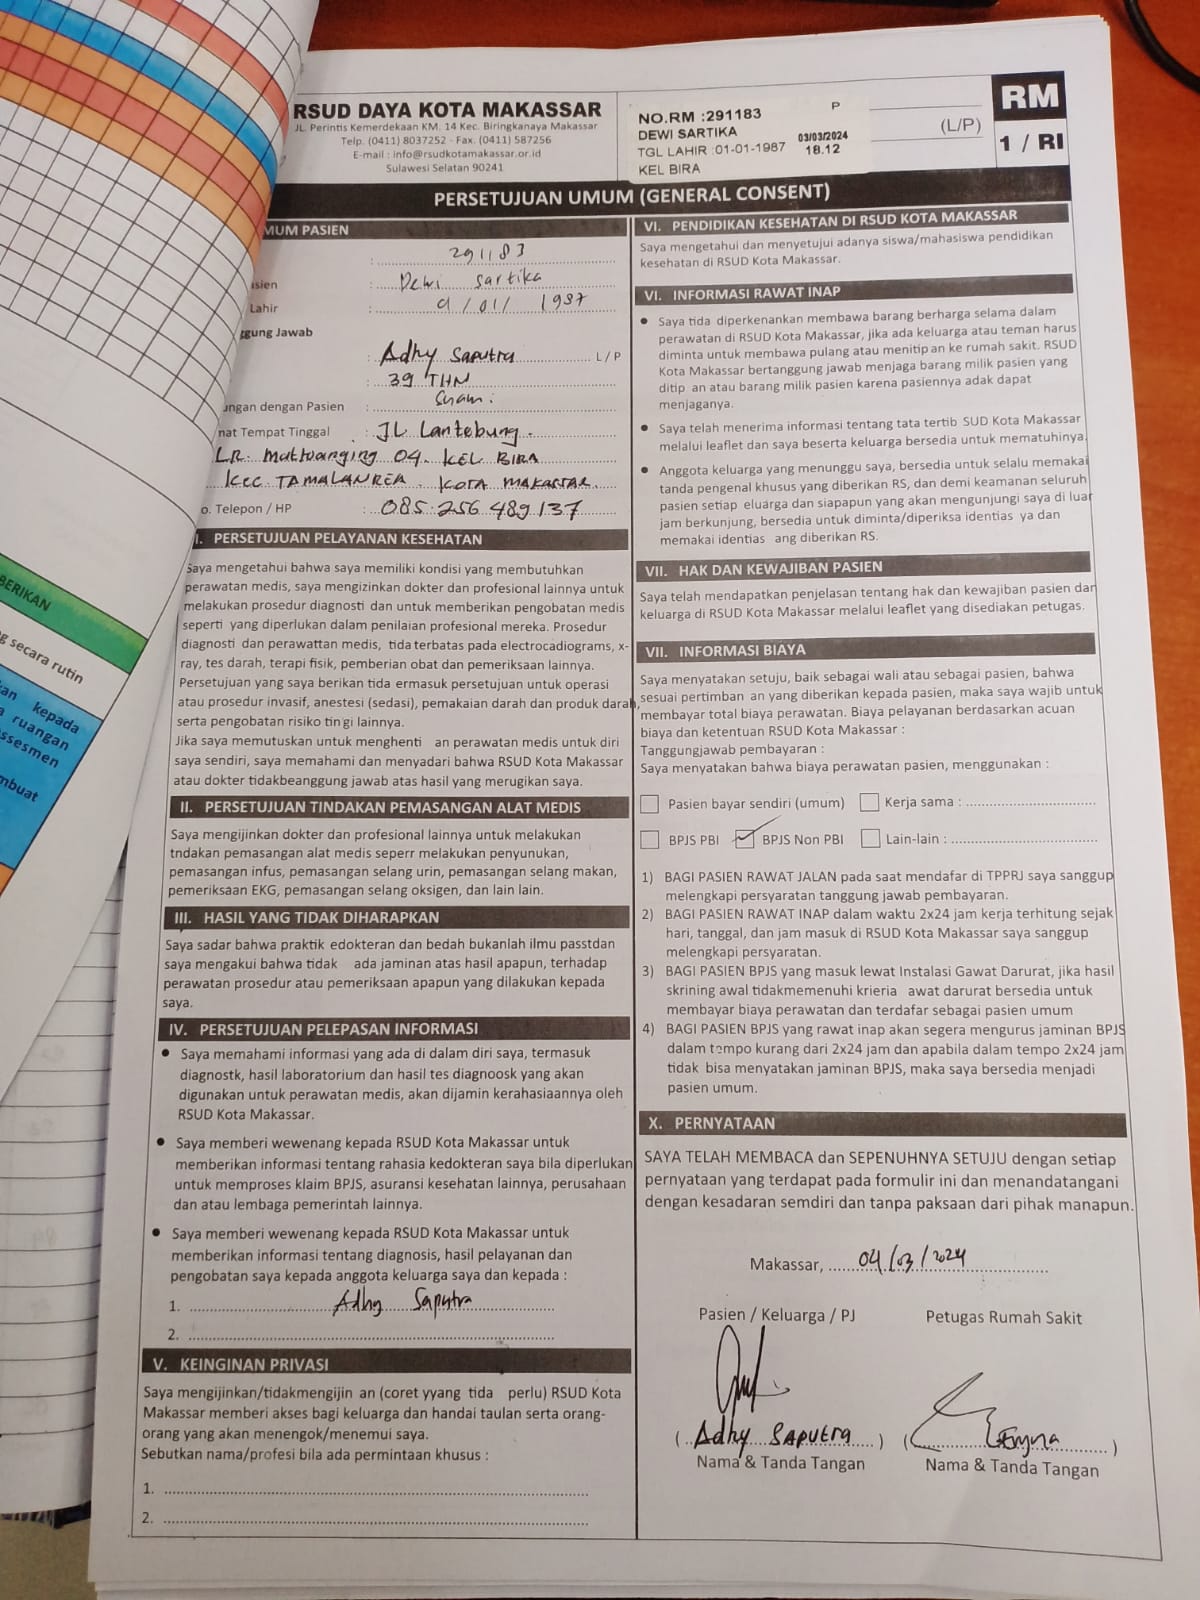 BERIKAN
g secara rutin
kan kepada
a ruangan
ssesmen
mbuat
RSUD DAYA KOTA MAKASSAR
JL. Perintis Kemerdekaan KM. 14 Kec. Biringkanaya Makassar
Telp. (0411) 8037252 - Fax. (0411) 587256
E-mail : info@rsudkotamakassar.or.id
Sulawesi Selatan 90241
NO.RM :291183 P
DEWI SARTIKA 03/03/2024
TGL LAHIR :01-01-1987 18.12
KEL BIRA
(L/P)
RM
1 / RI
PERSETUJUAN UMUM (GENERAL CONSENT)
MUM PASIEN
: 291183
asien : Dewi Sartika
Lahir : 01/01/ 1987
ggung Jawab
: Adhy Saputra L/P
: 39 THN
ungan dengan Pasien : Suami
nat Tempat Tinggal : JL Lantebung.
LR. Mattoanging 04. KEL BIRA
Kec TAMALANREA. KOTA MAKASSAR.
o. Telepon / HP : 085 256 489 137
I. PERSETUJUAN PELAYANAN KESEHATAN
Saya mengetahui bahwa saya memiliki kondisi yang membutuhkan
perawatan medis, saya mengizinkan dokter dan profesional lainnya untuk
melakukan prosedur diagnosti dan untuk memberikan pengobatan medis
seperti yang diperlukan dalam penilaian profesional mereka. Prosedur
diagnosti dan perawattan medis, tida terbatas pada electrocadiograms, x-
ray, tes darah, terapi fisik, pemberian obat dan pemeriksaan lainnya.
Persetujuan yang saya berikan tida ermasuk persetujuan untuk operasi
atau prosedur invasif, anestesi (sedasi), pemakaian darah dan produk darah,
serta pengobatan risiko tingi lainnya.
Jika saya memutuskan untuk menghenti an perawatan medis untuk diri
saya sendiri, saya memahami dan menyadari bahwa RSUD Kota Makassar
atau dokter tidakbeanggung jawab atas hasil yang merugikan saya.
II. PERSETUJUAN TINDAKAN PEMASANGAN ALAT MEDIS
Saya mengijinkan dokter dan profesional lainnya untuk melakukan
tndakan pemasangan alat medis seperr melakukan penyunukan,
pemasangan infus, pemasangan selang urin, pemasangan selang makan,
pemeriksaan EKG, pemasangan selang oksigen, dan lain lain.
III. HASIL YANG TIDAK DIHARAPKAN
Saya sadar bahwa praktik edokteran dan bedah bukanlah ilmu passtdan
saya mengakui bahwa tidak ada jaminan atas hasil apapun, terhadap
perawatan prosedur atau pemeriksaan apapun yang dilakukan kepada
saya.
IV. PERSETUJUAN PELEPASAN INFORMASI
• Saya memahami informasi yang ada di dalam diri saya, termasuk
diagnostk, hasil laboratorium dan hasil tes diagnoosk yang akan
digunakan untuk perawatan medis, akan dijamin kerahasiaannya oleh
RSUD Kota Makassar.
• Saya memberi wewenang kepada RSUD Kota Makassar untuk
memberikan informasi tentang rahasia kedokteran saya bila diperlukan
untuk memproses klaim BPJS, asuransi kesehatan lainnya, perusahaan
dan atau lembaga pemerintah lainnya.
• Saya memberi wewenang kepada RSUD Kota Makassar untuk
memberikan informasi tentang diagnosis, hasil pelayanan dan
pengobatan saya kepada anggota keluarga saya dan kepada :
1. Adhy Saputra
2.
V. KEINGINAN PRIVASI
Saya mengijinkan/tidakmengijin an (coret yyang tida perlu) RSUD Kota
Makassar memberi akses bagi keluarga dan handai taulan serta orang-
orang yang akan menengok/menemui saya.
Sebutkan nama/profesi bila ada permintaan khusus :
1.
2.
VI. PENDIDIKAN KESEHATAN DI RSUD KOTA MAKASSAR
Saya mengetahui dan menyetujui adanya siswa/mahasiswa pendidikan
kesehatan di RSUD Kota Makassar.
VI. INFORMASI RAWAT INAP
• Saya tida diperkenankan membawa barang berharga selama dalam
perawatan di RSUD Kota Makassar, jika ada keluarga atau teman harus
diminta untuk membawa pulang atau menitip an ke rumah sakit. RSUD
Kota Makassar bertanggung jawab menjaga barang milik pasien yang
ditip an atau barang milik pasien karena pasiennya adak dapat
menjaganya.
• Saya telah menerima informasi tentang tata tertib SUD Kota Makassar
melalui leaflet dan saya beserta keluarga bersedia untuk mematuhinya.
• Anggota keluarga yang menunggu saya, bersedia untuk selalu memakai
tanda pengenal khusus yang diberikan RS, dan demi keamanan seluruh
pasien setiap eluarga dan siapapun yang akan mengunjungi saya di luar
jam berkunjung, bersedia untuk diminta/diperiksa identias ya dan
memakai identias ang diberikan RS.
VII. HAK DAN KEWAJIBAN PASIEN
Saya telah mendapatkan penjelasan tentang hak dan kewajiban pasien dan
keluarga di RSUD Kota Makassar melalui leaflet yang disediakan petugas.
VII. INFORMASI BIAYA
Saya menyatakan setuju, baik sebagai wali atau sebagai pasien, bahwa
sesuai pertimban an yang diberikan kepada pasien, maka saya wajib untuk
membayar total biaya perawatan. Biaya pelayanan berdasarkan acuan
biaya dan ketentuan RSUD Kota Makassar :
Tanggungjawab pembayaran :
Saya menyatakan bahwa biaya perawatan pasien, menggunakan :
Pasien bayar sendiri (umum) Kerja sama :
BPJS PBI BPJS Non PBI Lain-lain :
1) BAGI PASIEN RAWAT JALAN pada saat mendafar di TPPRJ saya sanggup
melengkapi persyaratan tanggung jawab pembayaran.
2) BAGI PASIEN RAWAT INAP dalam waktu 2x24 jam kerja terhitung sejak
hari, tanggal, dan jam masuk di RSUD Kota Makassar saya sanggup
melengkapi persyaratan.
3) BAGI PASIEN BPJS yang masuk lewat Instalasi Gawat Darurat, jika hasil
skrining awal tidakmemenuhi krieria awat darurat bersedia untuk
membayar biaya perawatan dan terdafar sebagai pasien umum
4) BAGI PASIEN BPJS yang rawat inap akan segera mengurus jaminan BPJS
dalam tempo kurang dari 2x24 jam dan apabila dalam tempo 2x24 jam
tidak bisa menyatakan jaminan BPJS, maka saya bersedia menjadi
pasien umum.
X. PERNYATAAN
SAYA TELAH MEMBACA dan SEPENUHNYA SETUJU dengan setiap
pernyataan yang terdapat pada formulir ini dan menandatangani
dengan kesadaran semdiri dan tanpa paksaan dari pihak manapun.
Makassar, 04/03/2024
Pasien / Keluarga / PJ Petugas Rumah Sakit
( Adhy SAPUTRA ) ( )
Nama & Tanda Tangan Nama & Tanda Tangan